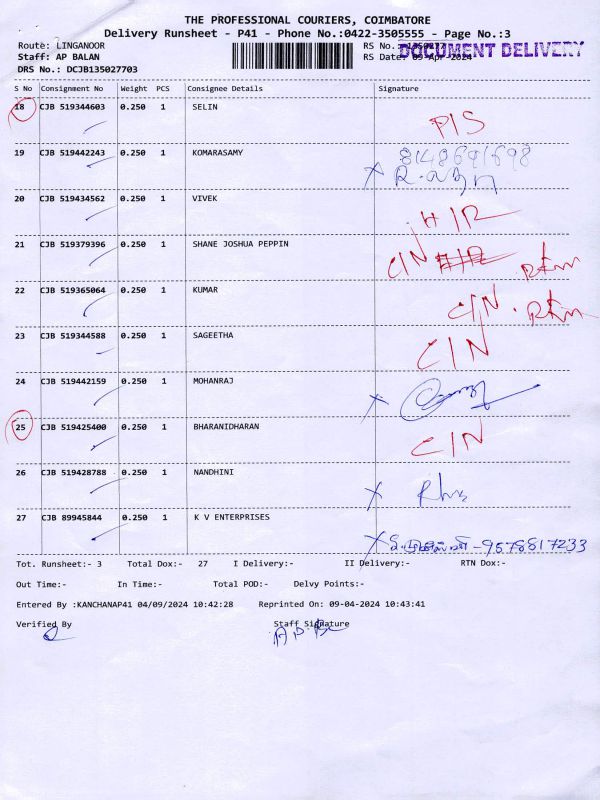 THE PROFESSIONAL COURIERS, COIMBATORE
Delivery Runsheet - P41 - Phone No.:0422-3505555 - Page No.:3
Route: LINGANOOR RS No.:
DOCUMENT DELIVERY
Staff: AP BALAN RS Date: 09-Apr-2024
DRS No.: DCJB135027703
S No Consignment No Weight PCS Consignee Details Signature
18 CJB 519344603 0.250 1 SELIN P/S
19 CJB 519442243 0.250 1 KOMARASAMY 8148691698
20 CJB 519434562 0.250 1 VIVEK H/R
21 CJB 519379396 0.250 1 SHANE JOSHUA PEPPIN C/N
22 CJB 519365064 0.250 1 KUMAR C/N.
23 CJB 519344588 0.250 1 SAGEETHA C/N
24 CJB 519442159 0.250 1 MOHANRAJ X
25 CJB 519425400 0.250 1 BHARANIDHARAN C/N
26 CJB 519428788 0.250 1 NANDHINI X
27 CJB 89945844 0.250 1 K V ENTERPRISES X - 9578817233
Tot. Runsheet:- 3 Total Dox:- 27 I Delivery:- II Delivery:- RTN Dox:-
Out Time:- In Time:- Total POD:- Delvy Points:-
Entered By :KANCHANAP41 04/09/2024 10:42:28 Reprinted On: 09-04-2024 10:43:41
Verified By Staff Signature